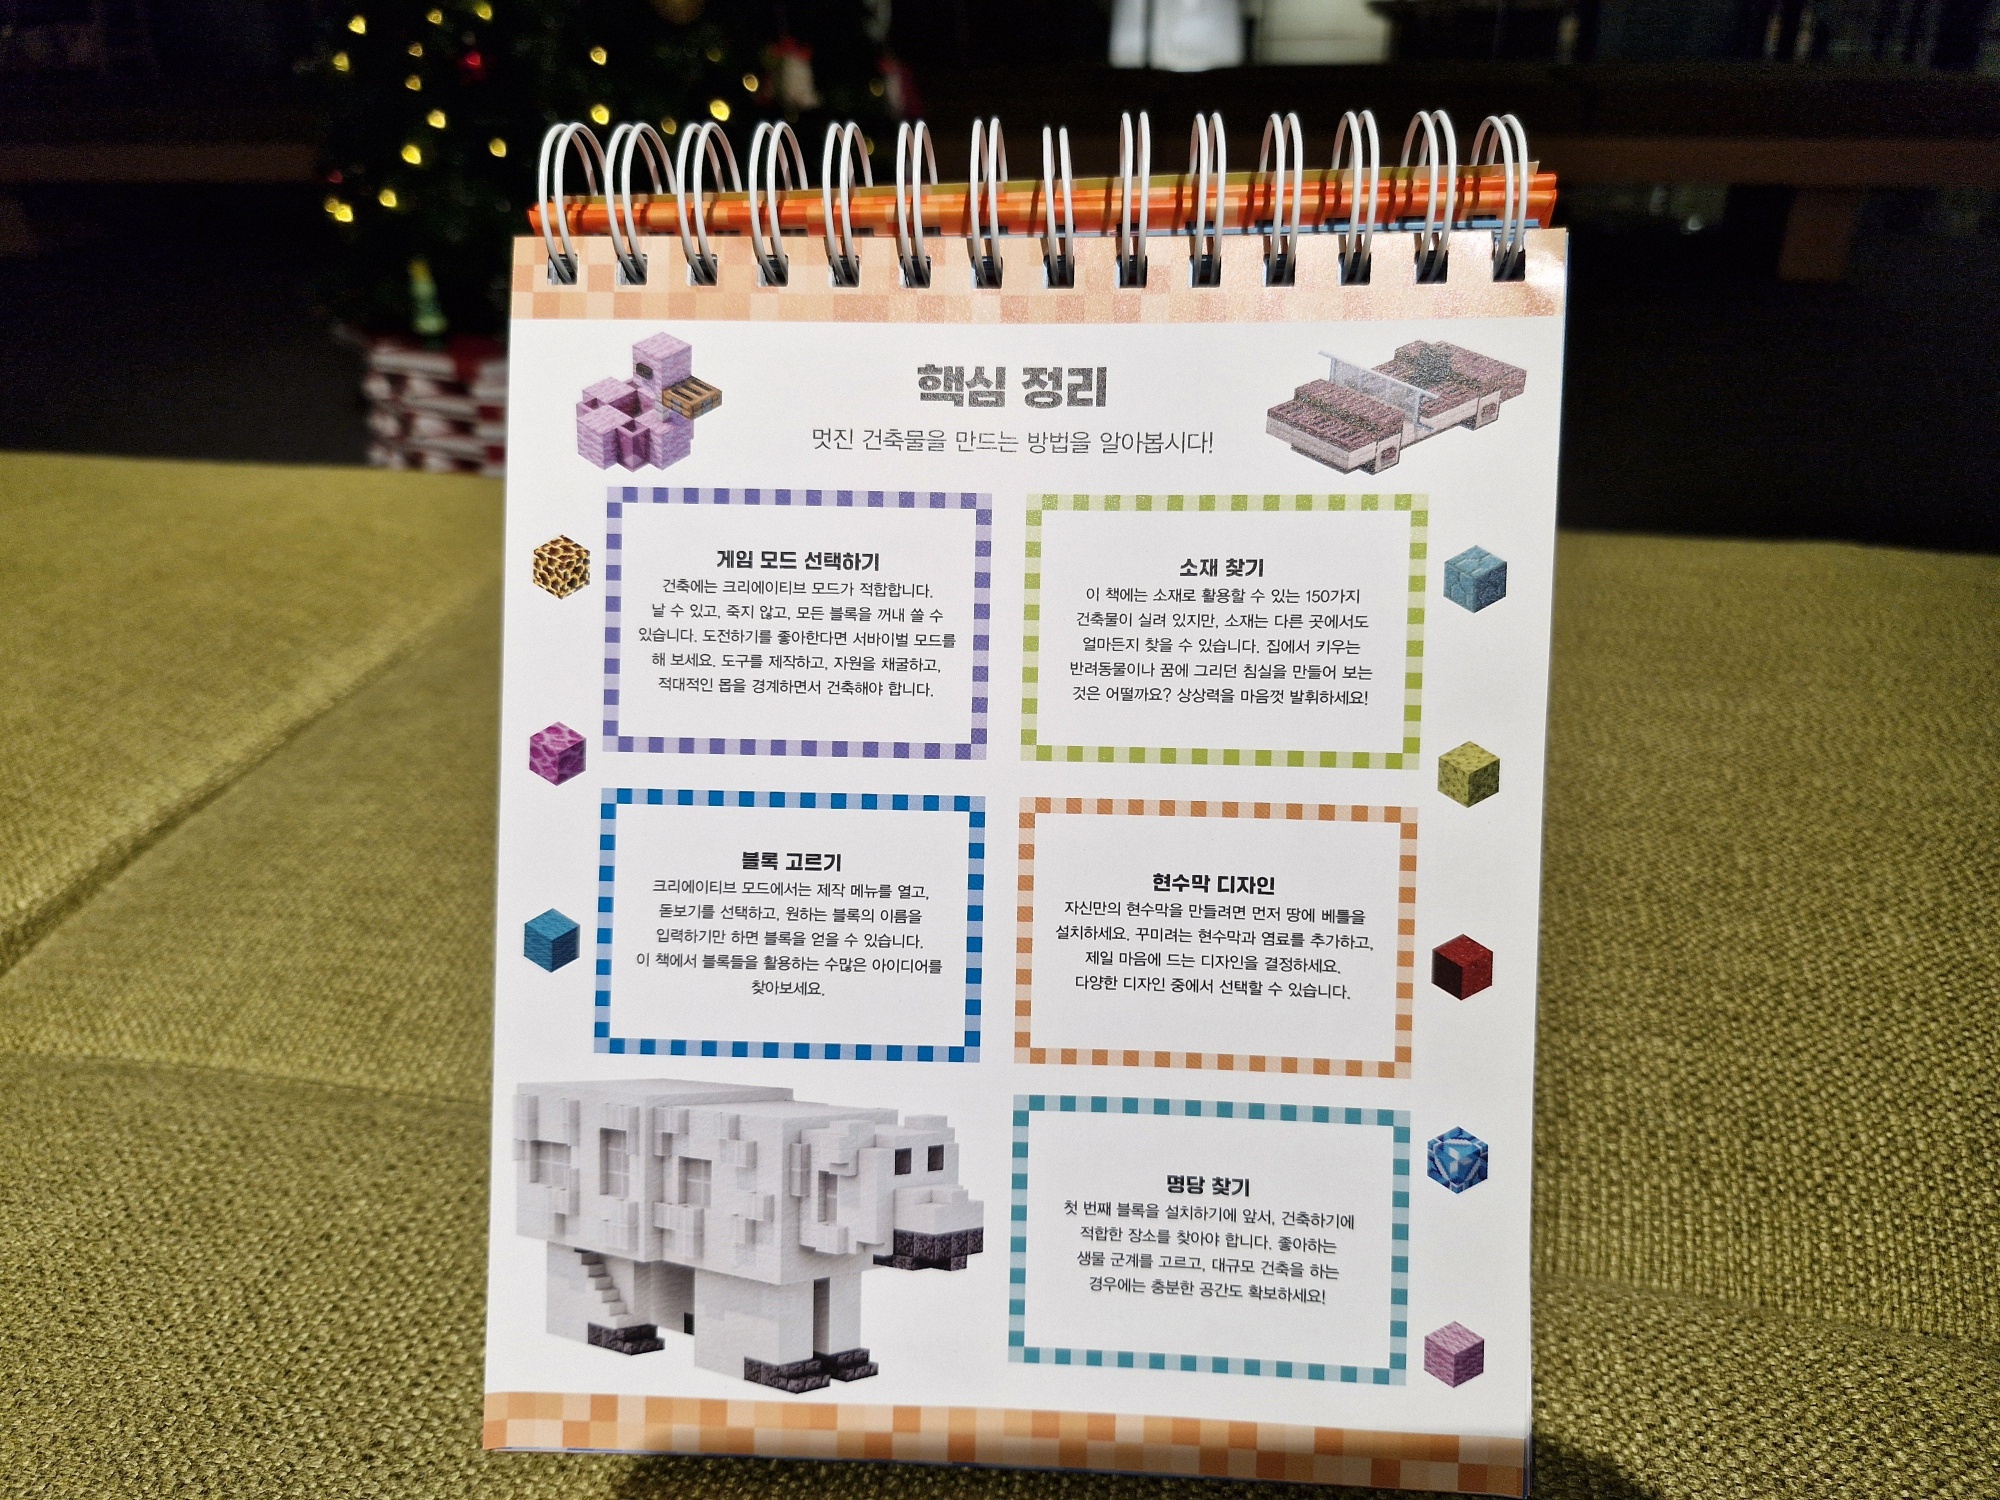 핵심 정리
멋진 건축물을 만드는 방법을 알아봅시다!
게임 모드 선택하기
건축에는 크리에이티브 모드가 적합합니다.
날 수 있고, 죽지 않고, 모든 블록을 꺼내 쓸 수
있습니다. 도전하기를 좋아한다면 서바이벌 모드를
해 보세요. 도구를 제작하고, 자원을 채굴하고,
적대적인 몹을 경계하면서 건축해야 합니다.
소재 찾기
이 책에는 소재로 활용할 수 있는 150가지
건축물이 실려 있지만, 소재는 다른 곳에서도
얼마든지 찾을 수 있습니다. 집에서 키우는
반려동물이나 꿈에 그리던 침실을 만들어 보는
것은 어떨까요? 상상력을 마음껏 발휘하세요!
블록 고르기
크리에이티브 모드에서는 제작 메뉴를 열고,
돋보기를 선택하고, 원하는 블록의 이름을
입력하기만 하면 블록을 얻을 수 있습니다.
이 책에서 블록들을 활용하는 수많은 아이디어를
찾아보세요.
현수막 디자인
자신만의 현수막을 만들려면 먼저 땅에 베틀을
설치하세요. 꾸미려는 현수막과 염료를 추가하고,
제일 마음에 드는 디자인을 결정하세요.
다양한 디자인 중에서 선택할 수 있습니다.
명당 찾기
첫 번째 블록을 설치하기에 앞서, 건축하기에
적합한 장소를 찾아야 합니다. 좋아하는
생물 군계를 고르고, 대규모 건축을 하는
경우에는 충분한 공간도 확보하세요!